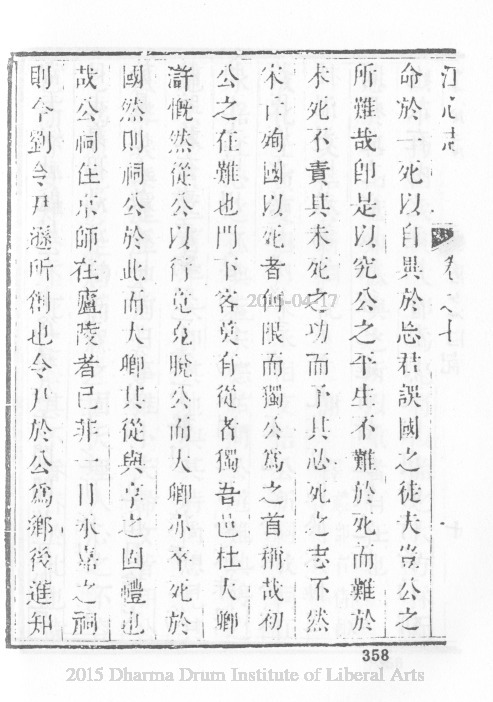 江心志 卷之十
命於一死以自異於忘君誤國之徒夫豈公之
所難哉即是以究公之平生不難於死而難於
未死不責其未死之功而予其必死之志不然
宋亡殉國以死者何限而獨公為之首稱哉初
公之在難也門下客莫有從者獨吾邑杜大卿
滸慨然從公以行竟免脫公而大卿亦卒死於
國然則祠公於此而大卿其從與享也固禮也
哉公祠在京師在廬陵者已非一日永嘉之祠
則今劉令尹遜所創也令尹於公為鄉後進知
2015-04-17
358
2015 Dharma Drum Institute of Liberal Arts